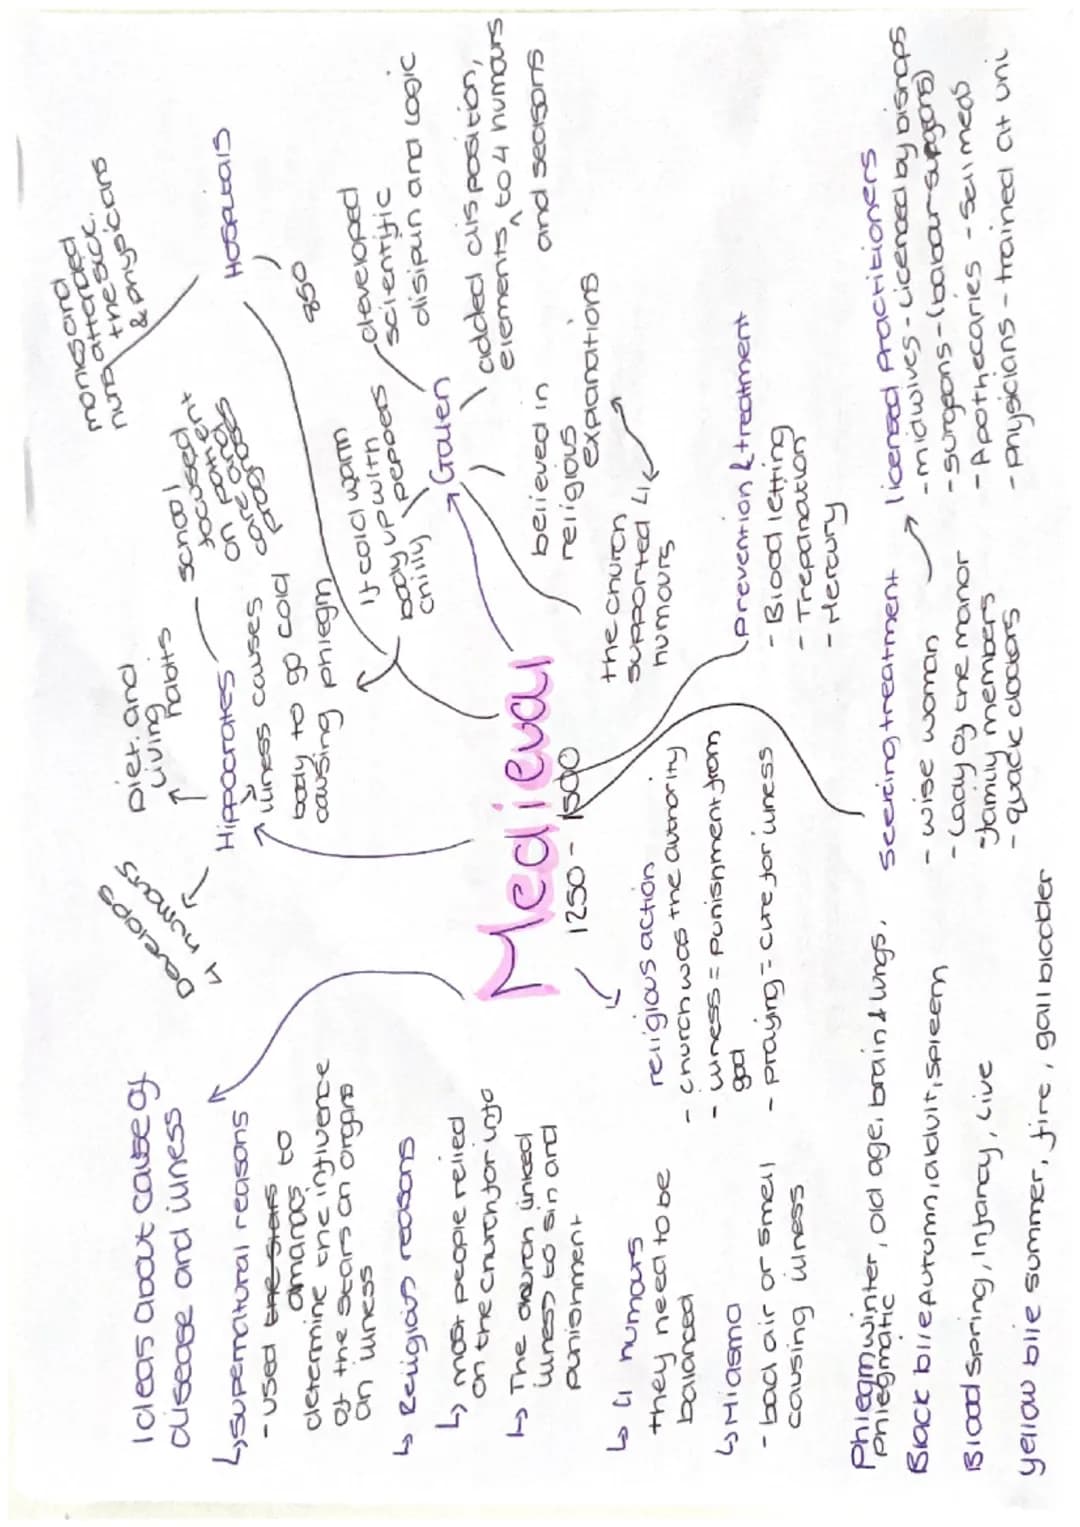 Medieval
1250 - 1500
Ideas about cause of
disease and illness
↳ supernatural reasons
- used the stars
almanacs to
determine the influence
of the stars on organs
on illness
↳ Religious reasons
↳ most people relied
on the church for info
↳ The church linked
illness to sin and
punishment
↳ 4 humours
they need to be
balanced
↳ Miasma
- bad air or smell
causing illness
Hippocrates
Develops
4 humours
Diet and
living
habits
school
focused
on patient
care and
prognoses
illness causes
body to go cold
causing phlegm
Hospitals
monks and
nuns attended
the sick
& physicans
Galen
developed
scientific
disipun and logic
added disposition,
elements, to 4 humours
and seasons
believed in
religious
explanations
the church
supported 4
humours
if cold warm
body up with
chilly peppers
religious action
- church was the authority
- illness = punishment from
god
- praying = cure for illness
Prevention & treatment
- Blood letting
- Trepanation
- Mercury
seeking treatment
- wise woman
- lady of the manor
- family members
- quack doctors
licensed Practitioners
- midwives - licenced by bishops
- surgeons - (babar-surgons)
- Apothecaries - sell meds
- Physicians - trained at uni
Phlegm winter, old age, brain & lungs,
Phlegmatic
Black bile Autumn, adult, spleem
Blood spring, infancy, live
yellow bile summer, fire, gall bladder